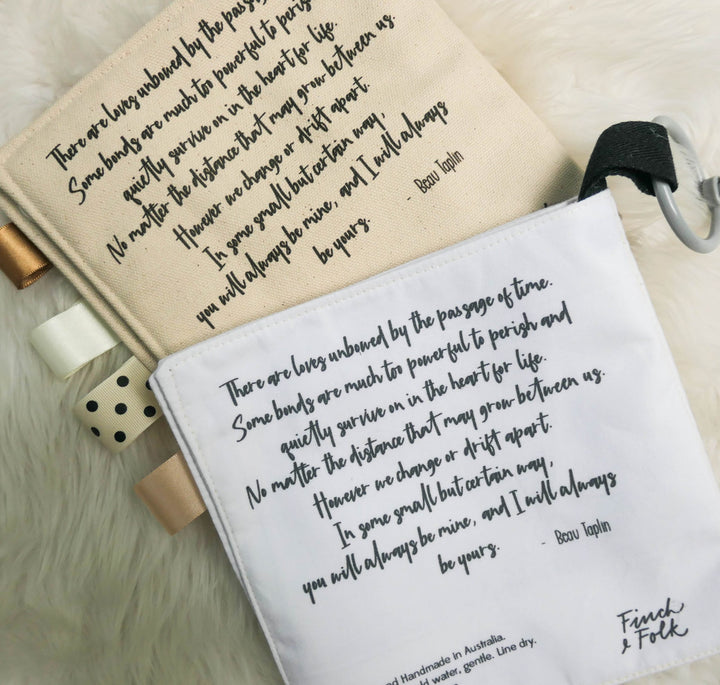 There are loves unbowed by the passag
Some bonds are much too powerful to peris
quietly survive on in the heart for life.
No matter the distance that may grow between us.
However we change or drift apart.
In some small but certain way,
you will always be mine, and I will always
be yours.
- Beau Taplin
There are loves unbowed by the passage of time.
Some bonds are much too powerful to perish and
quietly survive on in the heart for life.
No matter the distance that may grow between us.
However we change or drift apart.
In some small but certain way,
you will always be mine, and I will always
be yours.
- Beau Taplin
Finch
& Folk
d Handmade in Australia.
ld water, gentle. Line dry.